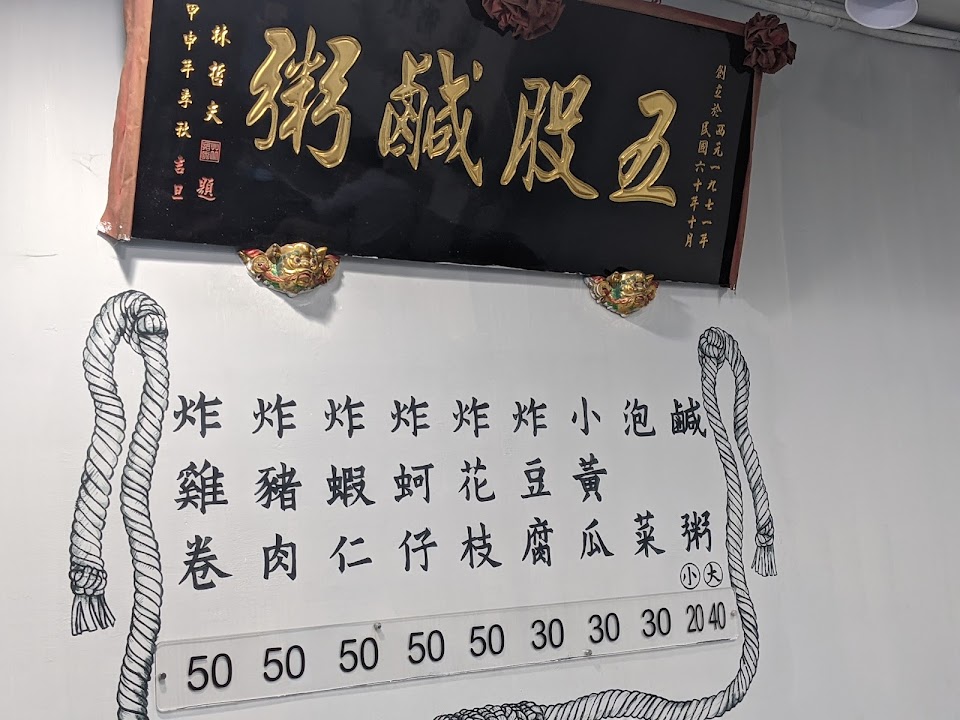 五股鹹粥
創立於西元一九七一年
民國六十年十月
林哲夫 題
甲申年季秋 吉旦
鹹粥 小 大 20 40
泡菜 30
小黃瓜 30
炸豆腐 30
炸花枝 50
炸蚵仔 50
炸蝦仁 50
炸豬肉 50
炸雞卷 50